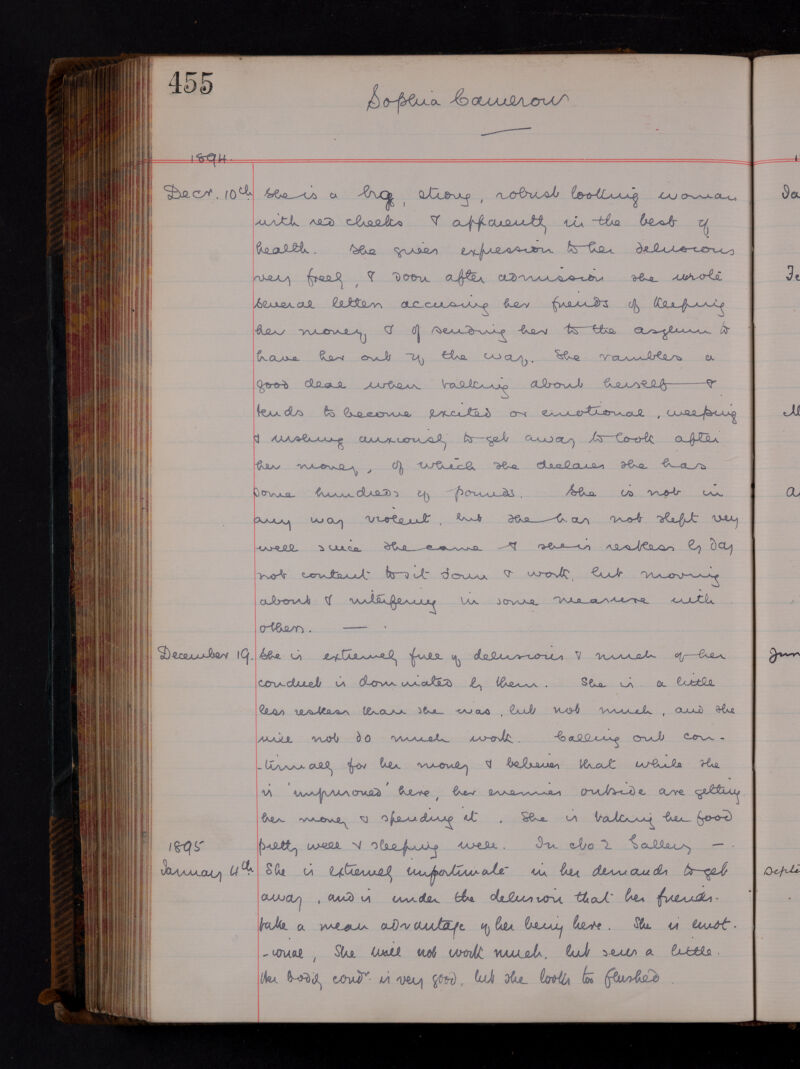 455
Sophia Cameron
1894.
Decr. 10th She is a big, strong, robust looking woman
with red cheeks & apparently in the best of
health. She gives expression to her delusions
very freely, & soon after admission she wrote
several letters accusing her friends of keeping
her money & of sending her to the asylum to
have her out of the way. She rambles a
good deal when talking about herself &
tends to become excited or emotional, weeping
& wishing anxiously to get away to look after
her money, of which she declares she has
some hundreds of pounds. She is not in
any way violent, but she has not slept very
well since she came & she is restless by day
not content to sit down & work, but moving
about & interfering in some measure with
others. —
December 19. She is extremely full of delusions & much of her
conduct is dominated by them. She is a little
less restless than she was, but not much, and she
will not do much work. Calling out con-
-tinually for her money & believes that while she
is 'imprisoned' here, her enemies outside are getting
her money & spending it. She is taking her food
pretty well & sleeping well. In No 2 Gallery —.
1895
January 4th She is extremely importunate in her demands to get
away, and is under the delusion that her friends
take a mean advantage of her being here. She is emot-
-ional, She will not work much, but sews a little.
Her bodily condn. is very good, but she looks too flushed.
Ja
Fe
M
A
Jun
Septe